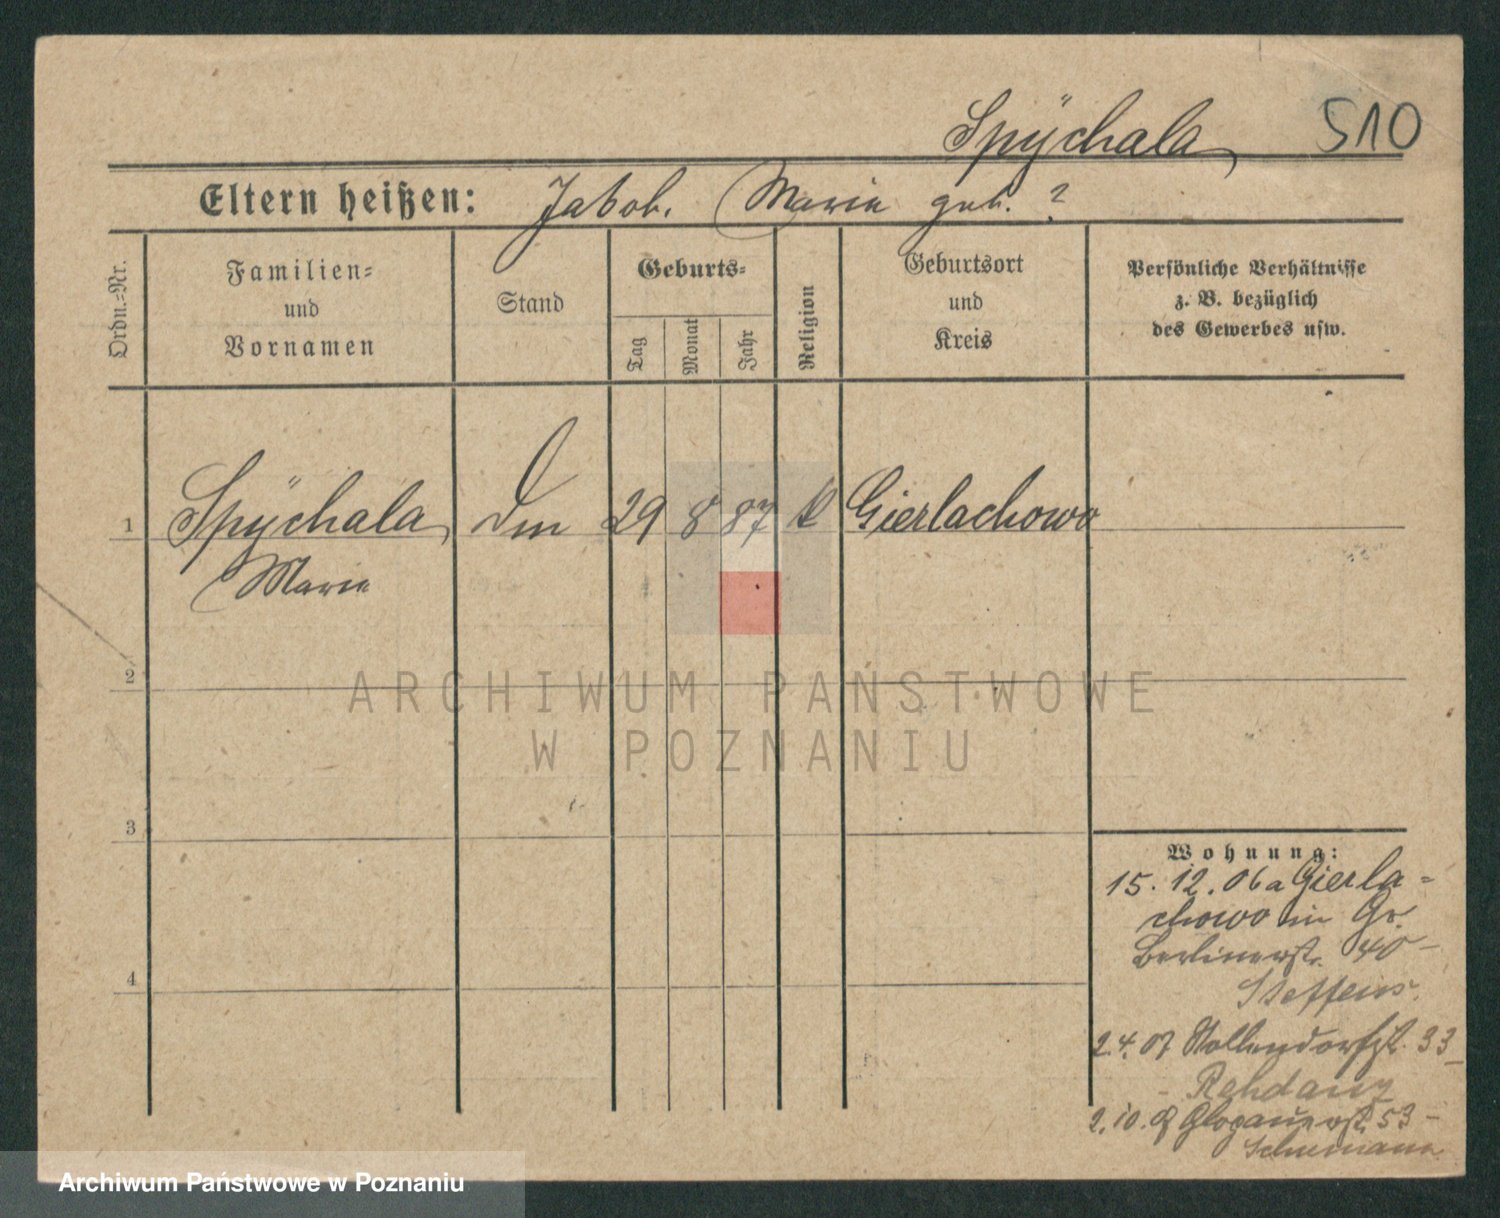 Spÿchala
510
Eltern heißen: Jakob. Marie geb. ?
Ordn.-Nr.
Familien-
und
Vornamen
Stand
Geburts-
Tag
Monat
Jahr
Religion
Geburtsort
und
Kreis
Persönliche Verhältnisse
z. B. bezüglich
des Gewerbes usw.
1 Spÿchala Dm 29 8 87 k Gierlachowo
Marie
2
ARCHIWUM PAŃSTWOWE
W POZNANIU
3
Wohnung:
15. 12. 06 a Gierla-
chowo in Gr.
Berlinerstr. 40 -
Steffens.
4
2.4.07 33
- Rehdanz
2.10. Glogauerstr. 53 -
Schemann
Archiwum Państwowe w Poznaniu